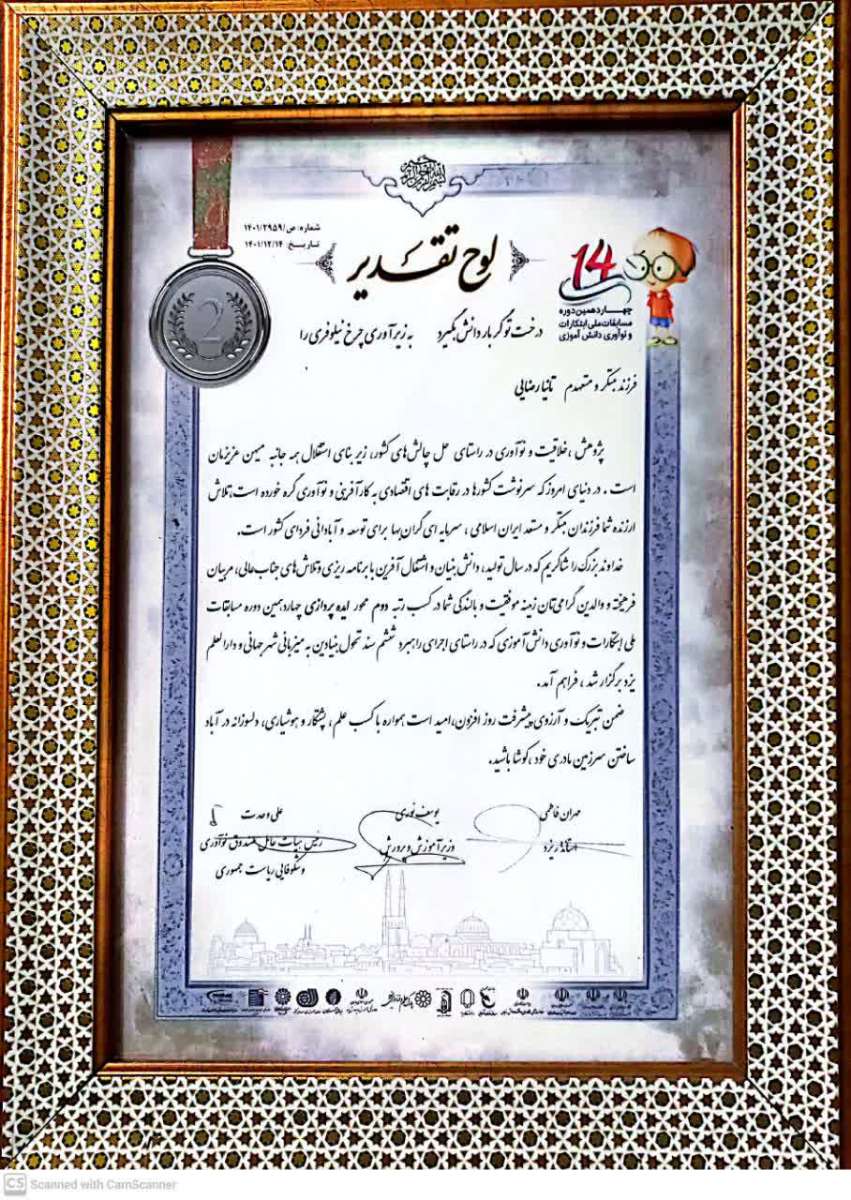 بسم الله الرحمن الرحیم
شماره: ص/۱۴۰۱/۲۹۵۹
تاریخ: ۱۴۰۱/۱۲/۱۴
لوح تقدیر
14
چهاردهمین دوره
مسابقات ملی ابتکارات
و نوآوری دانش آموزی
2
درخت تو گر بار دانش بگیرد به زیر آوری چرخ نیلوفری را
فرزند مبتکر و متعهدم تانیا رضایی
پژوهش، خلاقیت و نوآوری در راستای حل چالش‌های کشور، زیر بنای استقلال همه جانبه میهن عزیزمان
است. در دنیای امروز که سرنوشت کشورها در رقابت های اقتصادی به کارآفرینی و نوآوری گره خورده است، تلاش
ارزنده شما فرزندان مبتکر و مستعد ایران اسلامی، سرمایه ای گران‌بها برای توسعه و آبادانی فردای کشور است.
خداوند بزرگ را شاکریم که در سال تولید، دانش بنیان و اشتغال آفرین با برنامه ریزی و تلاش‌های جناب‌عالی، مربیان
فرهیخته و والدین گرامی‌تان زمینه موفقیت و بالندگی شما در کسب رتبه دوم محور ایده پردازی چهاردهمین دوره مسابقات
ملی ابتکارات و نوآوری دانش آموزی که در راستای اجرای راهبرد ششم سند تحول بنیادین به میزبانی شهر جهانی و دارالعلم
یزد برگزار شد، فراهم آمد.
ضمن تبریک و آرزوی پیشرفت روز افزون، امید است همواره با کسب علم، پشتکار و هوشیاری، دلسوزانه در آباد
ساختن سرزمین مادری خود، کوشا باشید.
مهران فاطمی
استاندار یزد
یوسف نوری
وزیر آموزش و پرورش
علی وحدت
رئیس هیات عامل صندوق نوآوری
و شکوفایی ریاست جمهوری
CS Scanned with CamScanner